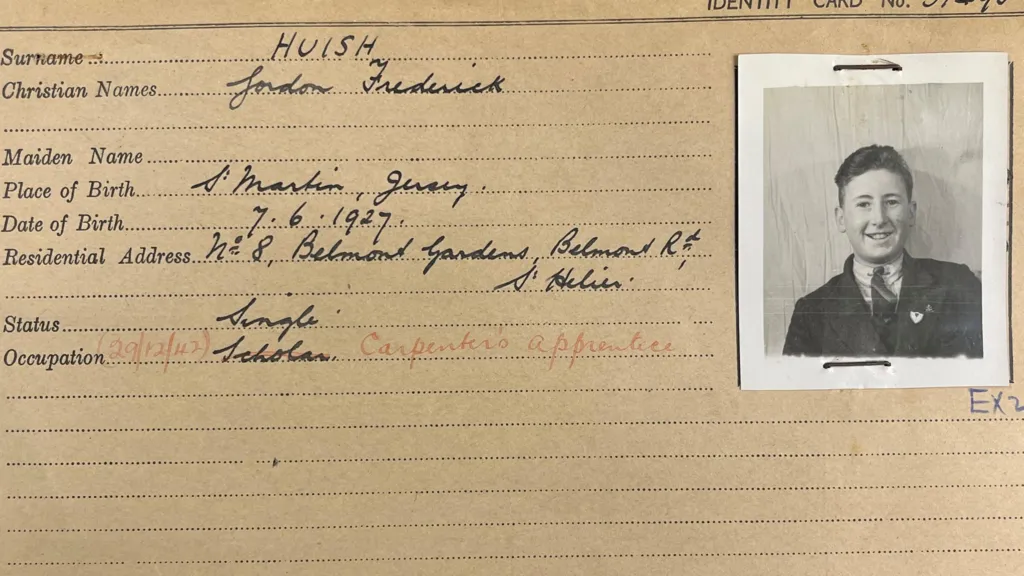 IDENTITY CARD No.
Surname HUISH
Christian Names Gordon Frederick
Maiden Name
Place of Birth St Martin, Jersey.
Date of Birth 7.6.1927.
Residential Address No 8, Belmont Gardens, Belmont Rd,
St Helier.
Status Single
Occupation (29/12/42) Scholar. Carpenter's apprentice
EX2